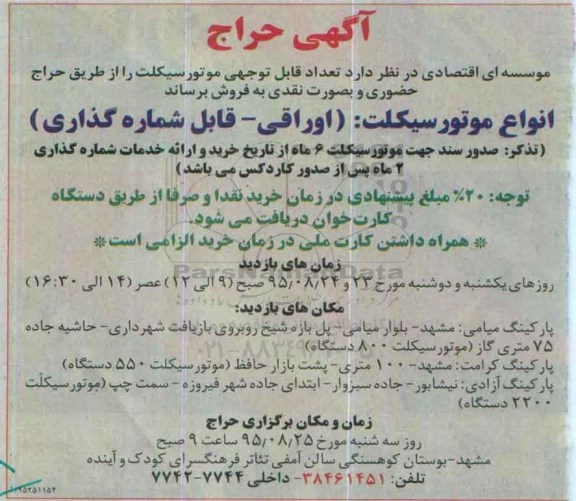 آگهی حراج
موسسه ای اقتصادی در نظر دارد تعداد قابل توجهی موتورسیکلت را از طریق حراج
حضوری و بصورت نقدی به فروش برساند
انواع موتورسیکلت: (اوراقی- قابل شماره گذاری)
(تذکر: صدور سند جهت موتورسیکلت ۶ ماه از تاریخ خرید و ارائه خدمات شماره گذاری
۲ ماه پس از صدور کاردکس می باشد)
توجه: ۲۰% مبلغ پیشنهادی در زمان خرید نقدا و صرفا از طریق دستگاه
کارت خوان دریافت می شود.
* همراه داشتن کارت ملی در زمان خرید الزامی است*
زمان های بازدید
روزهای یکشنبه و دوشنبه مورخ ۲۳ و ۹۵/۰۸/۲۴ صبح (۹ الی ۱۲) عصر (۱۴ الی ۱۶:۳۰)
مکان های بازدید:
پارکینگ میامی: مشهد- بلوار میامی- پل بازه شیخ روبروی بازیافت شهرداری- حاشیه جاده
۷۵ متری گاز (موتورسیکلت ۸۰۰ دستگاه)
پارکینگ کرامت: مشهد- ۱۰۰ متری- پشت بازار حافظ (موتورسیکلت ۵۵۰ دستگاه)
پارکینگ آزادی: نیشابور- جاده سبزوار- ابتدای جاده شهر فیروزه - سمت چپ (موتورسیکلت
۲۲۰۰ دستگاه)
زمان و مکان برگزاری حراج
روز سه شنبه مورخ ۹۵/۰۸/۲۵ ساعت ۹ صبح
مشهد-بوستان کوهسنگی سالن آمفی تئاتر فرهنگسرای کودک و آینده
تلفن: ۳۸۴۶۱۴۵۱- داخلی ۷۷۴۴-۷۷۴۲
ParsNamadData
۹۵۲۵۱۱۵۲